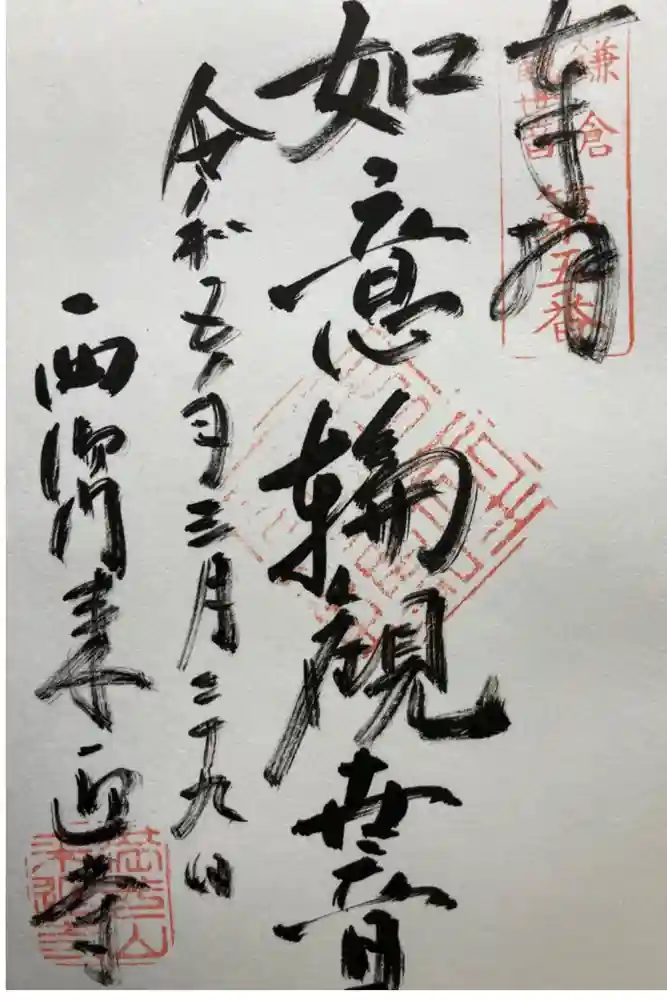 奉拝
鎌倉
観世音
第五番
如意輪観世音
令和五年三月二十九日
西御門来迎寺
満光山
来迎寺